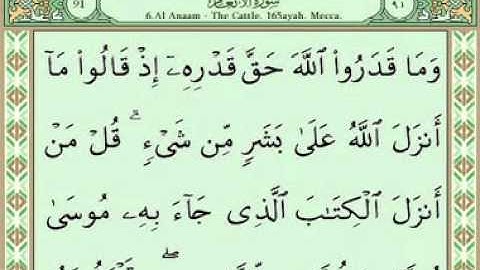 91 سورة الأنعام ٩١
6.Al Anaam - The Cattle. 165ayah. Mecca.
وَمَا قَدَرُوا۟ ٱللَّهَ حَقَّ قَدْرِهِۦٓ إِذْ قَالُوا۟ مَآ
أَنزَلَ ٱللَّهُ عَلَىٰ بَشَرٍ مِّن شَىْءٍ ۗ قُلْ مَنْ
أَنزَلَ ٱلْكِتَـٰبَ ٱلَّذِى جَآءَ بِهِۦ مُوسَىٰ